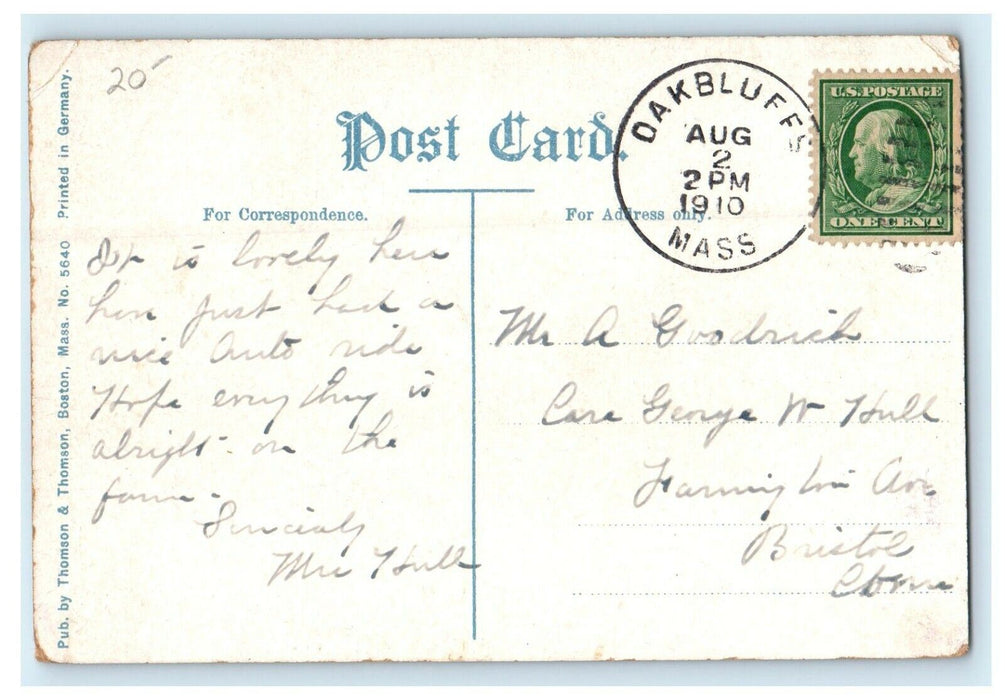 20
Post Card.
For Correspondence.
For Address only.
OAKBLUFFS
AUG
2
2 PM
1910
MASS
U.S. POSTAGE
ONE CENT
It is lovely here
have just had a
nice Auto ride
Hope everything is
alright on the
farm.
Sincialy
Mrs Hull
Mr A Goodrich
Care George W Hull
Farmington Ave
Bristol
Conn
Pub. by Thomson & Thomson, Boston, Mass. No. 5640 Printed in Germany.